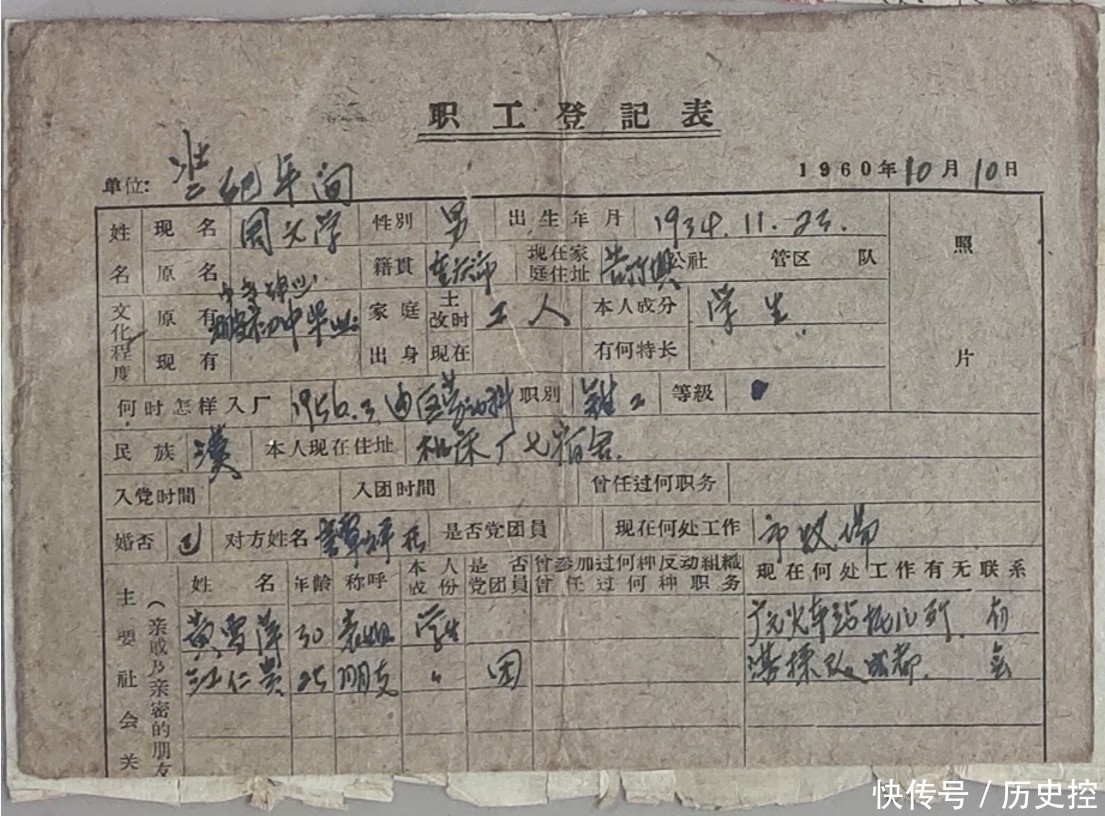 职工登記表
单位： 年间 1960年10月10日
姓名 现名 周 学 性别 男 出生年月 1934.11.23. 照片
原名 籍貫 重庆市 现在家庭住址 公社 管区 队
文化程度 原有 初中毕业 家庭出身 土改时 工人 本人成分 学生
现有 现在 有何特长 〃
何时怎样入厂 1956.3由区劳动科 职别 鉗工 等級
民族 漢 本人现在住址 机床厂七宿舍.
入党时間 入团时間 曾任过何职务
婚否 已 对方姓名 是否党团員 现在何处工作 市
主要社会关 （亲戚及亲密的朋友 姓名 年龄 称呼 本人成份 是否党团員 曾参加过何种反动組織曾任过何种职务 现在何处工作有无联系
黄雪萍 30 表姐 学生 广元火车站托儿所. 有
江仁贵 25 朋友 〃 团 成都.
快传号 / 历史控